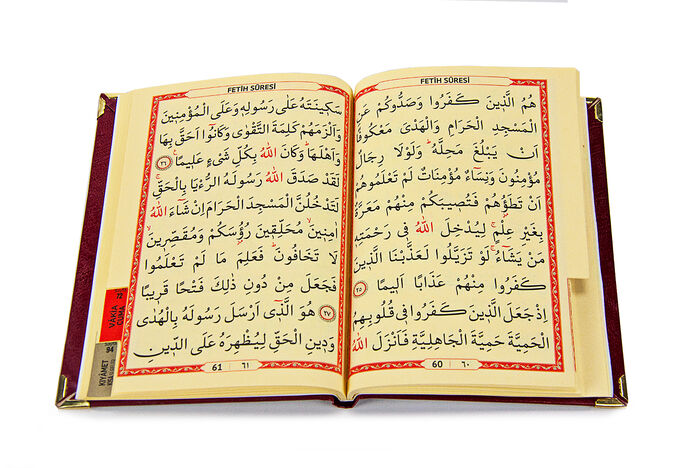 FETİH SÛRESİ
هُمُ الَّذ۪ينَ كَفَرُوا وَصَدُّوكُمْ عَنِ
الْمَسْجِدِ الْحَرَامِ وَالْهَدْيَ مَعْكُوفًا
اَنْ يَبْلُغَ مَحِلَّهُ وَلَوْلَا رِجَالٌ
مُؤْمِنُونَ وَنِسَٓاءٌ مُؤْمِنَاتٌ لَمْ تَعْلَمُوهُمْ
اَنْ تَطَؤُ۫هُمْ فَتُص۪يبَكُمْ مِنْهُمْ مَعَرَّةٌ
بِغَيْرِ عِلْمٍۚ لِيُدْخِلَ اللّٰهُ ف۪ي رَحْمَتِه۪
مَنْ يَشَٓاءُۚ لَوْ تَزَيَّلُوا لَعَذَّبْنَا الَّذ۪ينَ
كَفَرُوا مِنْهُمْ عَذَابًا اَل۪يمًا ٢٥
اِذْ جَعَلَ الَّذ۪ينَ كَفَرُوا ف۪ي قُلُوبِهِمُ
الْحَمِيَّةَ حَمِيَّةَ الْجَاهِلِيَّةِ فَاَنْزَلَ اللّٰهُ
60 ٦٠
FETİH SÛRESİ
سَك۪ينَتَهُ عَلٰى رَسُولِه۪ وَعَلَى الْمُؤْمِن۪ينَ
وَاَلْزَمَهُمْ كَلِمَةَ التَّقْوٰى وَكَانُٓوا اَحَقَّ بِهَا
وَاَهْلَهَاۜ وَكَانَ اللّٰهُ بِكُلِّ شَيْءٍ عَل۪يمًا۟ ٢٦
لَقَدْ صَدَقَ اللّٰهُ رَسُولَهُ الرُّءْيَا بِالْحَقِّۚ
لَتَدْخُلُنَّ الْمَسْجِدَ الْحَرَامَ اِنْ شَٓاءَ اللّٰهُ
اٰمِن۪ينَۙ مُحَلِّق۪ينَ رُؤُ۫سَكُمْ وَمُقَصِّر۪ينَۙ
لَا تَخَافُونَۜ فَعَلِمَ مَا لَمْ تَعْلَمُوا
فَجَعَلَ مِنْ دُونِ ذٰلِكَ فَتْحًا قَر۪يبًا
٢٧ هُوَ الَّذ۪ٓي اَرْسَلَ رَسُولَهُ بِالْهُدٰى
وَد۪ينِ الْحَقِّ لِيُظْهِرَهُ عَلَى الدّ۪ينِ
61 ٦١
VÂKIA
CUMA
72
KIYÂMET
94